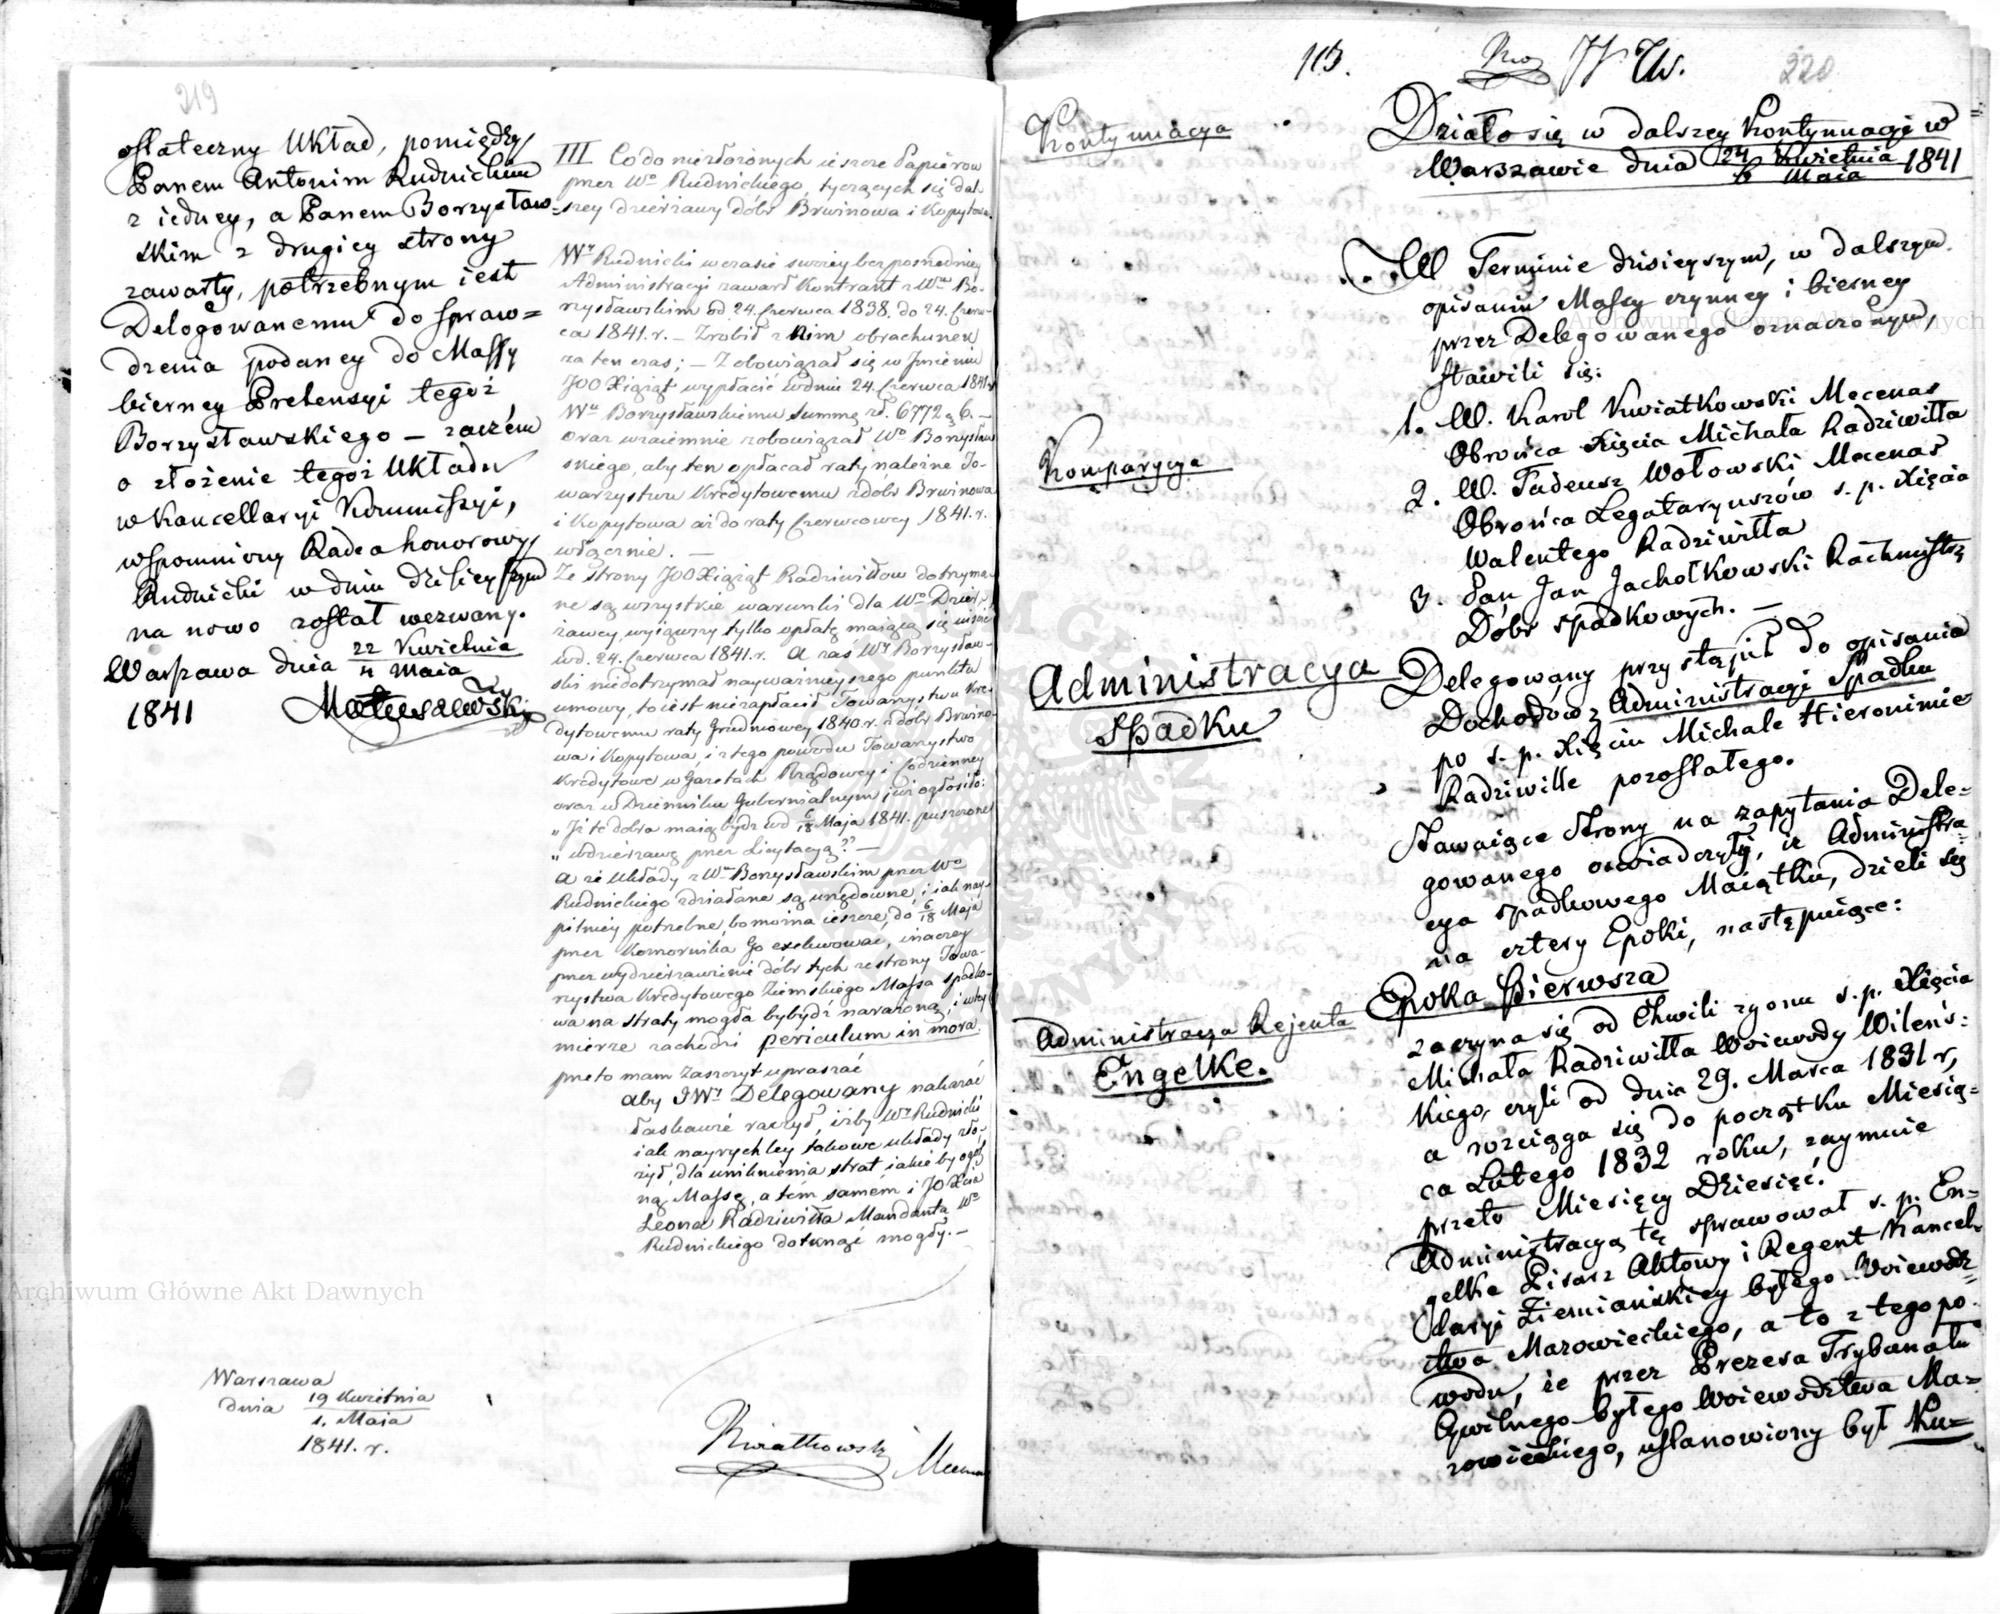 219
ostateczny Układ, pomiędzy
Panem Antonim Rudnickim
z iedney, a Panem Borzysław=
skim z drugiey strony
zawarty, potrzebnym iest
Delegowanemu do spraw=
dzenia podaney do Massy
bierney Pretensyi tegoż
Borzysławskiego – zaczém
o złożenie tegoż Układu
w Kancellaryi Kommissyi,
wspomniony Radca honorowy
Rudnicki w dniu dzisieyszym
na nowo został wezwany.
Warszawa dnia 22 Kwietnia
4 Maia
1841 Matuszewski
III Co do niezłożonych ieszcze Papierow
przez Wo Rudnickiego, tyczących się dal=
szey dzierżawy dóbr Brwinowa i Kopytowa.
Wr Rudnicki w czasie swoiey bezpośredniey
Administracyi zawarł Kontrakt z Wm Bo-
rzysławskim od 24. Czerwca 1838. do 24. Czerw-
ca 1841. r. – Zrobił z Nim obrachunek
za ten czas; – Zobowiązał się w Imieniu
JOO Xiążąt wypłacić w dniu 24. Czerwca 1841 r
Wu Borzysławskiemu summę zł. 6772 g 6. –
oraz wzaiemnie zobowiązał Wo Borzysław
skiego, aby ten opłacał raty należne To-
warzystwu Kredytowemu z dobr Brwinowa
i Kopytowa aż do raty Czerwcowey 1841. r.
włącznie. –
Ze strony JOO Xiążąt Radziwiłłow dotrzyma-
ne są wszystkie warunki dla Wo Dzier-
żawcy, wyiąwszy tylko opłatę maiącą się uiścić
w d. 24. Czerwca 1841. r. A zaś Wr Borzysław-
ski niedotrzymał nayważnieyszego punktu
umowy, to iest niezapłacił Towarzystwu Kre-
dytowemu raty Grudniowey 1840. r. z dobr Brwino-
wa i Kopytowa, i z tego powodu Towarzystwo
Kredytowe w Gazetach Rządowey i Codzienney
oraz w Dzienniku Gubernialnym już ogłosiło:
„Iż te dobra maią bydź w d 6/18 Maja 1841. puszczone
„w dzierżawę przez Licytacyą?" –
A że Układy z Wm Borzysławskim przez Wo
Rudnickiego zdziałane są urzędowne, i iak nay-
pilniey potrzebne, bo można ieszcze do 6/18 Maja
przez Komornika Go exekwować, inaczey
przez wydzierżawienie dóbr tych ze strony Towa-
rzystwa Kredytowego Ziemskiego Massa spadko-
wa na straty mogła by bydź narażoną, i w tey
mierze zachodzi periculum in mora.
przeto mam zaszczyt upraszać
aby JWr Delegowany nakazać
łaskawie raczył, iżby Wr Rudnicki
iak nayrychley takowe układy zło-
żył, dla uniknienia strat iakie by ogól
ną Massę, a tém samém i JO Xcia
Leona Radziwiłła Mandanta Wo
Rudnickiego dotknąć mogły. –
Warszawa
dnia 19 Kwietnia
1. Maia
1841. r.
Kwiatkowski Mecenas
113.
220
Kontynuacya
Działo się w dalszey Kontynuacyi w
Warszawie dnia 24 Kwietnia 1841
6 Maia
W Terminie dzisieyszym, w dalszym
opisaniu Massy czynney i bierney
przez Delegowanego oznaczonym,
stawili się:
Komparycya
1. W. Karol Kwiatkowski Mecenas
Obrońca Xięcia Michała Radziwiłła
2. W. Tadeusz Wołowski Mecenas
Obrońca Legataryuszów ś. p. Xięcia
Walentego Radziwiłła
3. Pan Jan Jachołkowski Rachmistrz
Dóbr spadkowych. –
Administracya
Spadku
Delegowany przystąpił do opisania
Dochodów z Administracyi Spadku
po ś. p. Xięciu Michale Hieronimie
Radziwille pozostałego.
Stawaiące Strony na zapytania Dele=
gowanego oświadczyły, iż Administra=
cya spadkowego Maiątku, dzieli się
na cztery Epoki, następuiące:
Epoka Pierwsza
Administracya Rejenta
Engelke.
zaczyna się od Chwili zgonu ś. p. Xięcia
Michała Radziwiłła Woiewody Wileńs=
kiego, czyli od dnia 29. Marca 1831 r,
a rozciąga się do początku Miesią=
ca Lutego 1832 roku, zaymuie
przeto Miesięcy Dziesięć.
Administracyą tę sprawował ś. p. En=
gelke Pisarz Aktowy i Regent Kancel=
laryi Ziemiańskiey byłego Woiewódz=
twa Mazowieckiego, a to z tego po=
wodu, że przez Prezesa Trybunału
Cywilnego byłego Woiewództwa Ma=
zowieckiego, ustanowiony był Ku=
Archiwum Główne Akt Dawnych
Archiwum Główne Akt Dawnych